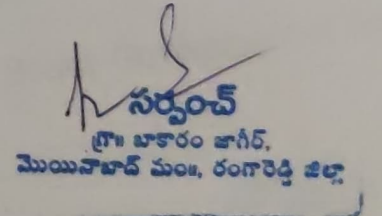 సర్పంచ్
గ్రా॥ బాకారం జాగీర్,
మొయినాబాద్ మం॥, రంగారెడ్డి జిల్లా